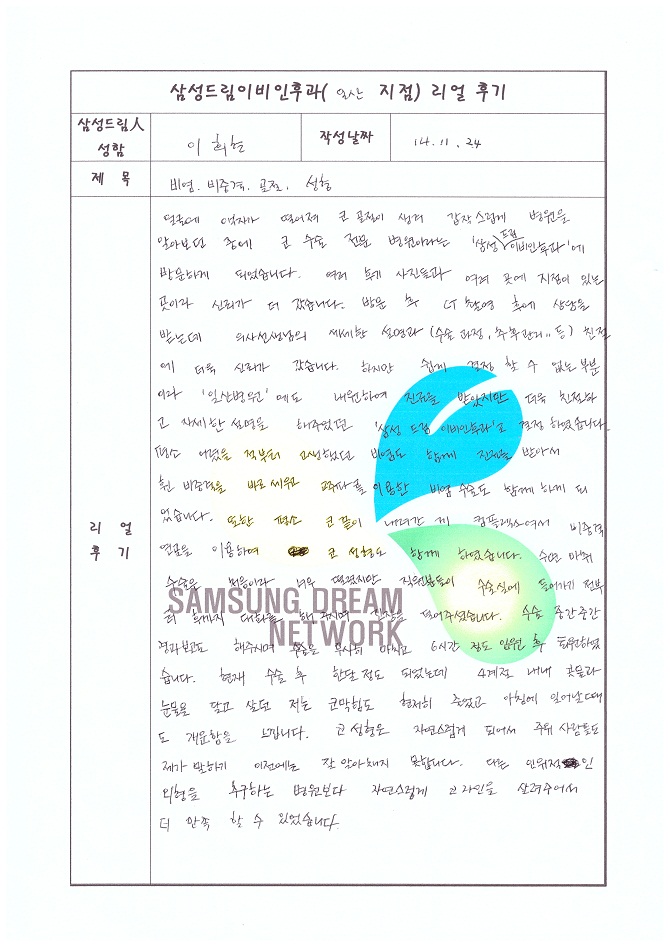 삼성드림이비인후과( 일산 지점) 리얼 후기
삼성드림人 성함
이 희현
작성날짜
14. 11. 24
제 목
비염. 비중격. 골절. 성형
리 얼 후 기
얼굴에 의자가 떨어져 코 골절이 생겨 갑작스럽게 병원을
알아보던 중에 코 수술 전문 병원이라는 '삼성드림이비인후과'에
방문하게 되었습니다. 여러 후기 사진들과 여러 곳에 지점이 있는
곳이라 신뢰가 더 갔습니다. 방문 후 CT 촬영 후에 상담을
받는데 의사선생님의 세세한 설명과 (수술 과정, 추후관리.. 등) 친절
에 더욱 신뢰가 갔습니다. 하지만 쉽게 결정 할 수 없는 부분
이라 '일산병원'에도 내원하여 진료를 받았지만 더욱 친절하
고 자세한 설명을 해주었던 '삼성 드림 이비인후과'로 결정 하였습니다.
평소 어렸을 적부터 고생했던 비염도 함께 진료를 받아서
휜 비중격을 바로 세워 고주파를 이용한 비염 수술도 함께 하게 되
었습니다. 또한 평소 코 끝이 내려간 게 컴플렉스여서 비중격
연골을 이용하여 코 성형도 함께 하였습니다. 수면 마취
수술은 처음이라 너무 떨렸지만 직원분들이 수술실에 들어가기 전부
터 후까지 대화를 해 주시며 긴장을 덜어주셨습니다. 수술 중간중간
경과보고도 해주시며 수술을 무사히 마치고 6시간 정도 입원 후 퇴원하였
습니다. 현재 수술 후 한달 정도 되었는데 4계절 내내 콧물과
눈물을 달고 살던 저는 코막힘도 현저히 줄었고 아침에 일어날 때
도 개운함을 느낍니다. 코 성형은 자연스럽게 되어서 주위 사람들도
제가 말하기 이전에는 잘 알아채지 못합니다. 다른 인위적인
외형을 추구하는 병원보다 자연스럽게 코 라인을 살려주어서
더 만족 할 수 있었습니다.
SAMSUNG DREAM
NETWORK